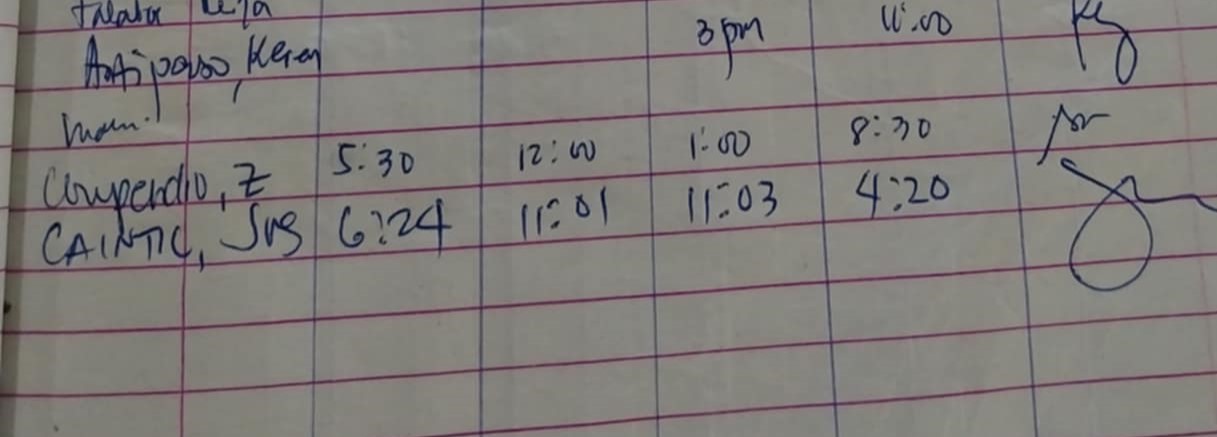 Antiporso, Keren 3 pm 11:00
Compendio, Z 5:30 12:00 1:00 8:30
CAINTIC, JVS 6:24 11:01 11:03 4:20